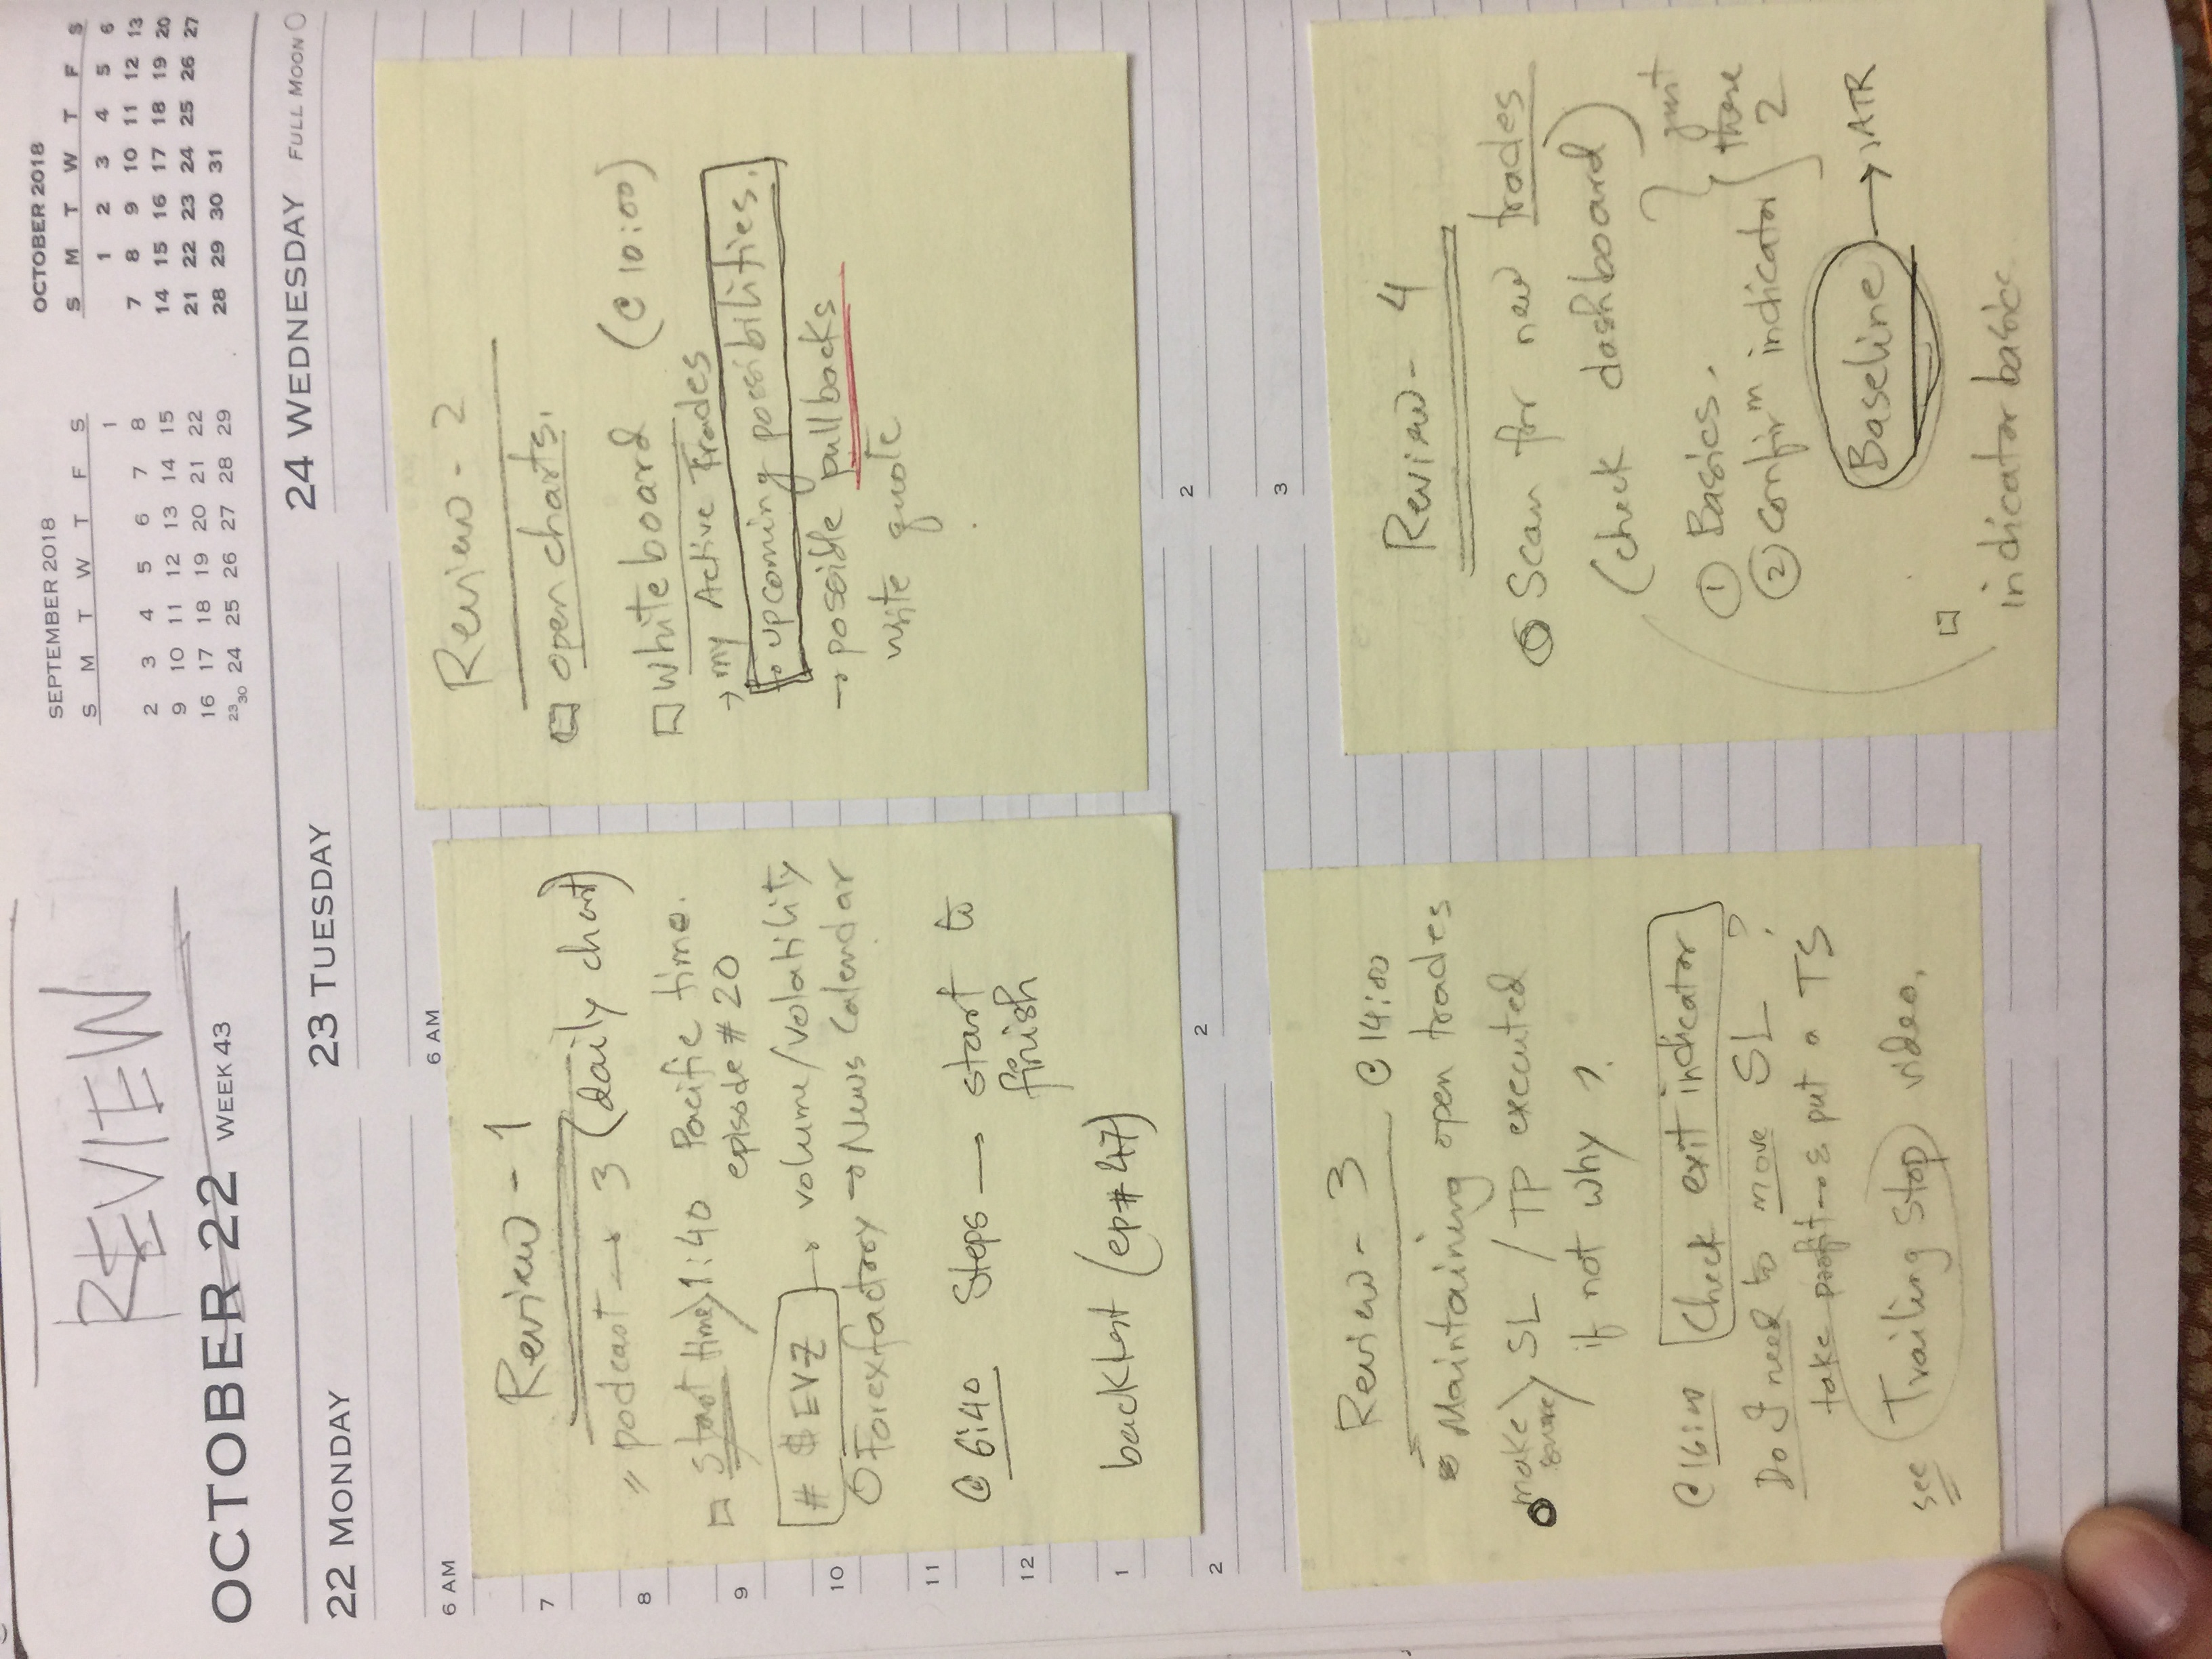 REVIEW
OCTOBER 22 WEEK 43
SEPTEMBER 2018
S M T W T F S
1
2 3 4 5 6 7 8
9 10 11 12 13 14 15
16 17 18 19 20 21 22
23 30 24 25 26 27 28 29
OCTOBER 2018
S M T W T F S
1 2 3 4 5 6
7 8 9 10 11 12 13
14 15 16 17 18 19 20
21 22 23 24 25 26 27
28 29 30 31
22 MONDAY
23 TUESDAY
24 WEDNESDAY FULL MOON
6 AM
7
8
9
10
11
12
1
2
6 AM
2
2
3
Review - 1
podcast → 3 (daily chart)
start time 1:40 Pacific time.
episode # 20
# $EVZ → volume/volatility
Forexfactory → News Calendar
@ 6:40 Steps → start to
finish
backtest (ep# 47)
Review - 2
open charts.
Whiteboard (@ 10:00)
→ my Active Trades
→ upcoming possibilities.
→ possible pullbacks
write quote
Review - 3 @ 14:00
Maintaining open trades
make sure SL / TP executed
if not why ?
@ 16:00 Check exit indicator
Do I need to move SL ?
take profit → & put a TS
see Trailing Stop video.
Review - 4
Scan for new trades
(check dashboard)
① Basics.
② Confirm indicator
just
these
2
Baseline → 1 ATR
indicator basics